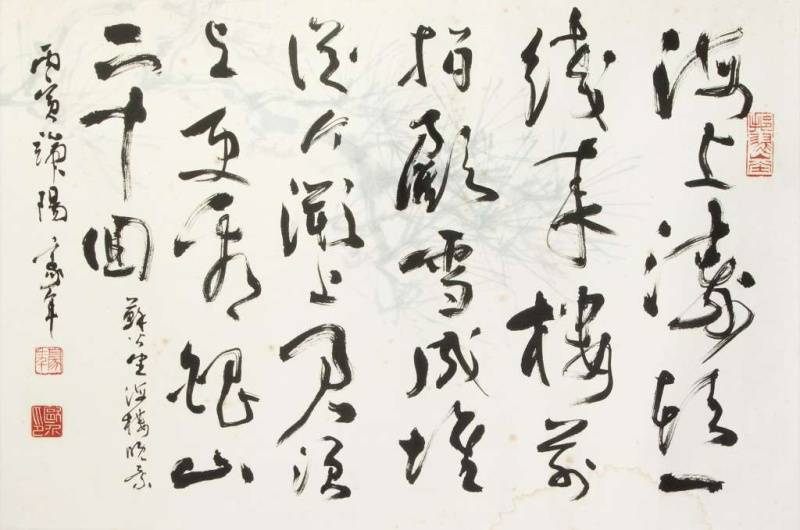 海上濤頭一
綫來樓前
指顧雪成堆
從今潮上君須
上更看銀山
二十回
蘇公望海樓晚景
丙寅端陽 豪年